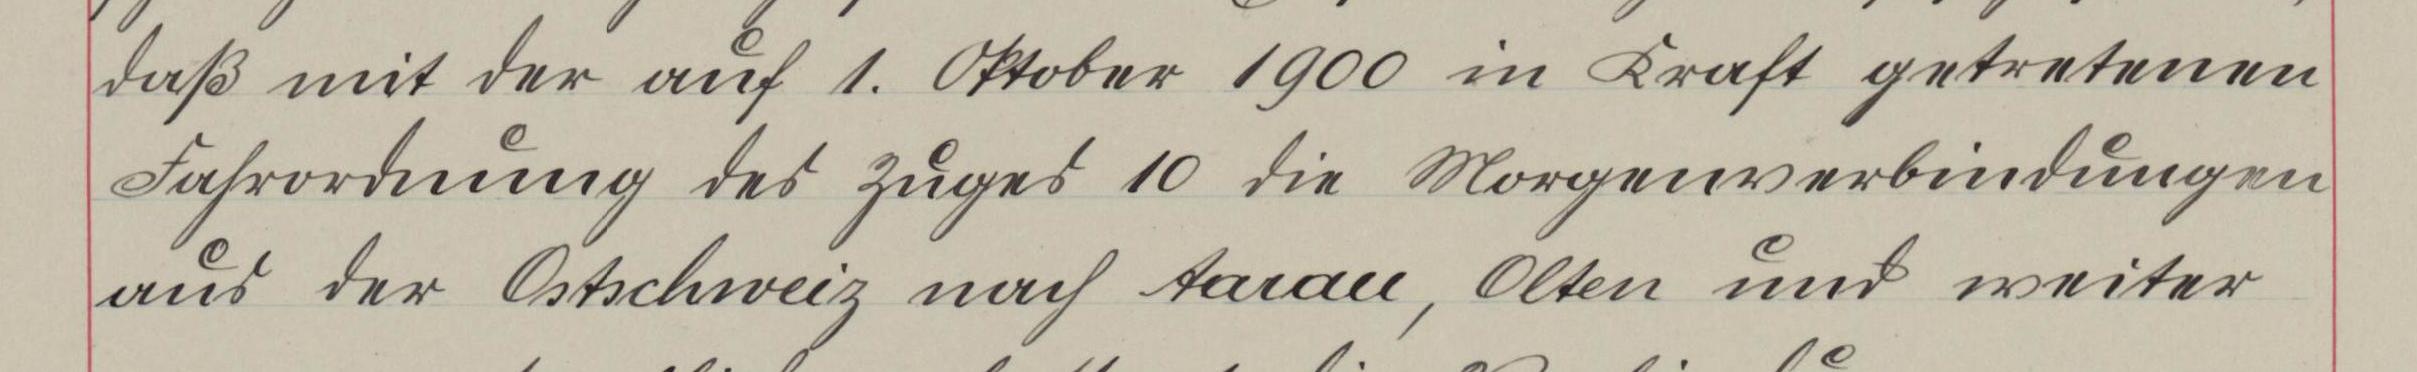 daß mit der auf 1. Oktober 1900 in Kraft getretenen
Fahrordnung des Zuges 10 die Morgenverbindungen
aus der Ostschweiz nach Aarau, Olten und weiter